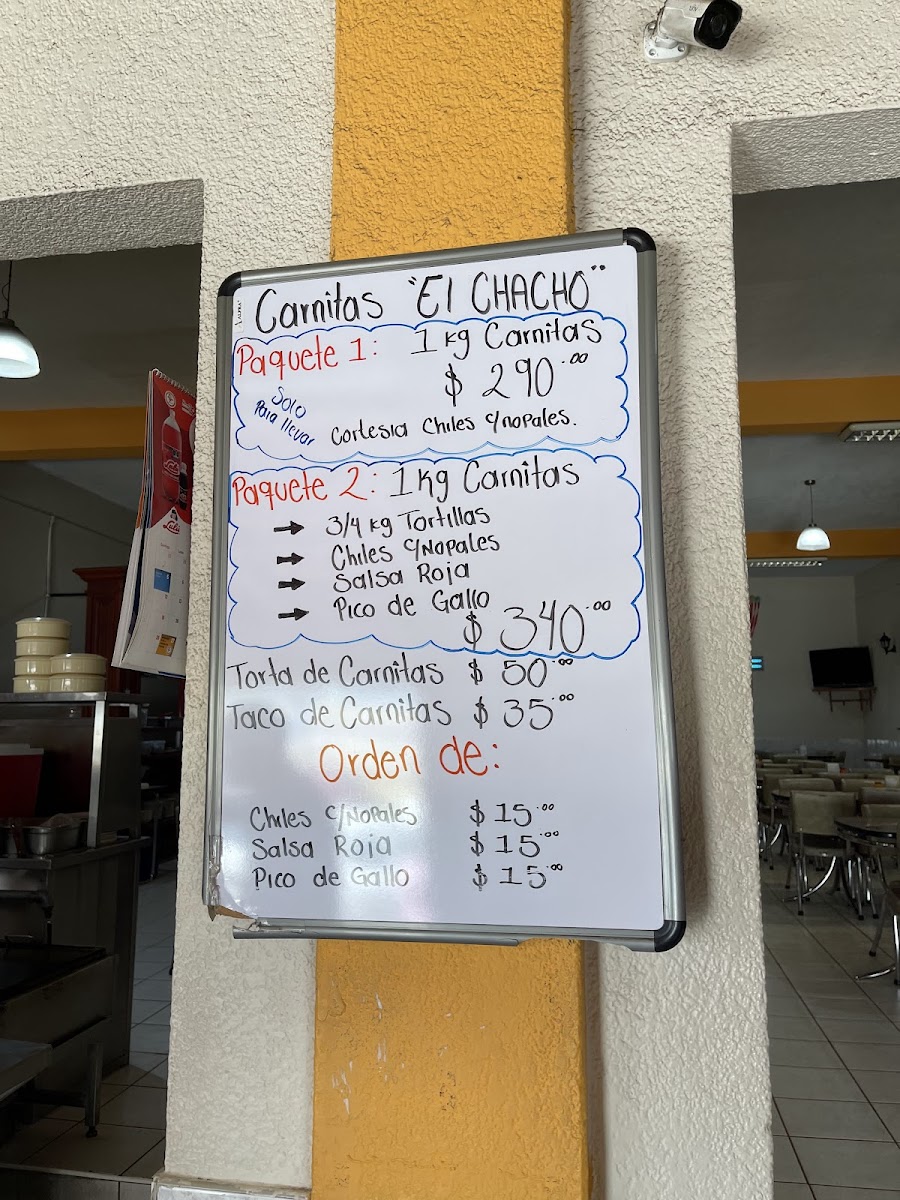 Carnitas "El CHACHO"
Paquete 1: 1 kg Carnitas
$ 290.00
Solo
Para llevar
Cortesia Chiles c/nopales.
Paquete 2: 1 kg Carnitas
→ 3/4 kg Tortillas
→ Chiles c/Nopales
→ Salsa Roja
→ Pico de Gallo
$ 340.00
Torta de Carnitas $ 50.00
Taco de Carnitas $ 35.00
Orden de:
Chiles c/Nopales $ 15.00
Salsa Roja $ 15.00
Pico de Gallo $ 15.00